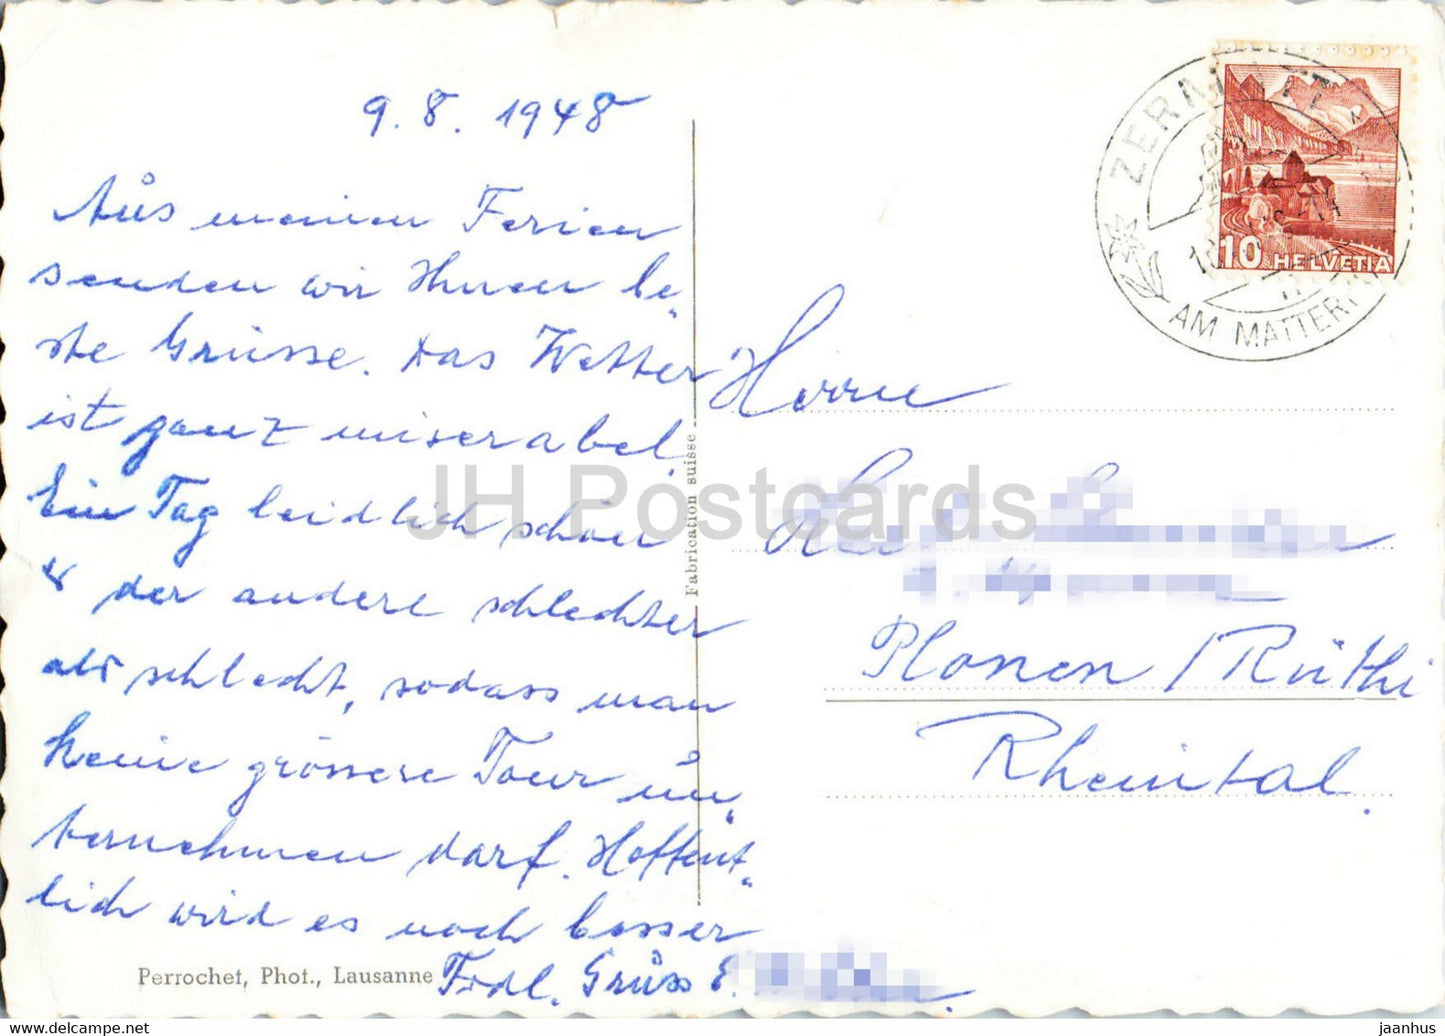 9.8. 1948
Aus meinen Ferien
senden wir Ihnen be„
ste Grüsse. Das Wetter
ist ganz miserabel.
Ein Tag leidlich schön
& der andere schlechter
als schlecht, sodass man
keine grössere Tour un„
ternehmen darf. Hoffent„
lich wird es noch besser
Frdl. Grüss E.
Perrochet, Phot., Lausanne
Fabrication suisse
ZERMATT
AM MATTERH
10 HELVETIA
Herrn
Plonen / Rüthi
Rheintal.
JH Postcards
jaanhus
hipstamp.com